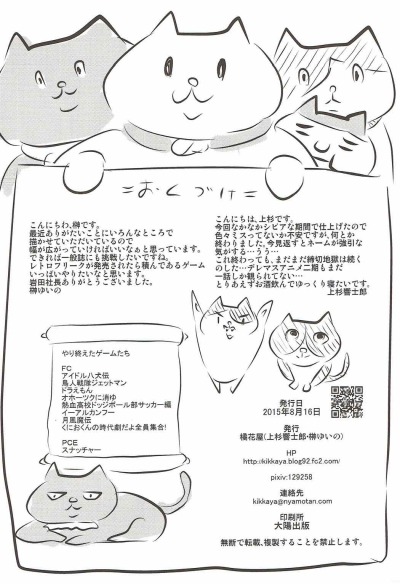 おくづけ
こんにちわ、榊です。
最近ありがたいことにいろんなところで
描かせていただいているので
幅が広がっていければいいなぁと思っています。
できれば一般誌にも挑戦したいですね。
レトロフリークが発売されたら積んであるゲーム
いっぱいやりたいなと思います。
岩田社長ありがとうございました。
榊ゆいの
こんにちは、上杉です。
今回なかなかシビアな期間で仕上げたので
色々ミスってないか不安ですが、何とか
終わりました。今見返すとネームが強引な
気がする…うう…
これ終わっても、まだまだ締切地獄は続く
のした…デレマスアニメ二期もまだ
一話しか観られてない…
とりあえずお酒飲んでゆっくり寝たいです。
上杉響士郎
やり終えたゲームたち
FC
アイドル八犬伝
鳥人戦隊ジェットマン
ドラえもん
オホーツクに消ゆ
熱血高校ドッジボール部サッカー編
イーアルカンフー
月風魔伝
くにおくんの時代劇だよ全員集合!
PCE
スナッチャー
発行日
2015年8月16日
発行
橘花屋(上杉響士郎・榊ゆいの)
HP
http://kikkaya.blog92.fc2.com/
pixiv:129258
連絡先
kikkaya@nyamotan.com
印刷所
大陽出版
無断で転載、複製することを禁止します。